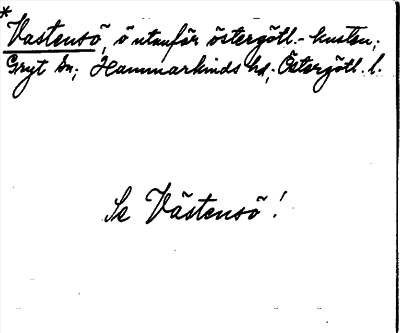 *
Vastensö, ö utanför östergötl.-kusten;
Gryt sn; Hammarkinds hd; Östergötl. l.
Se Västensö!